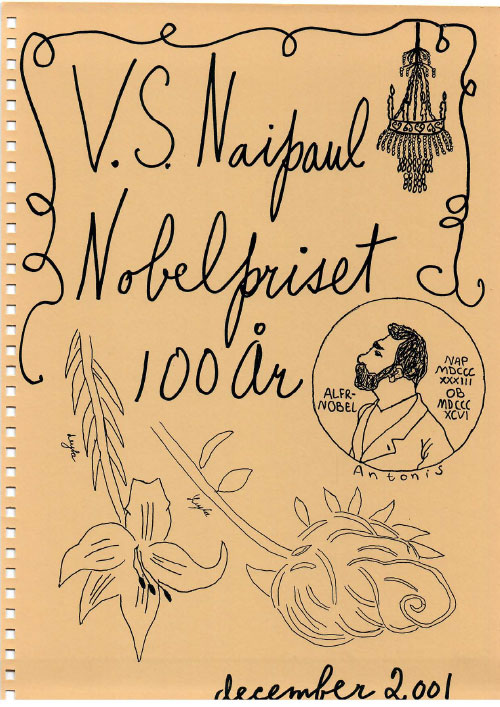 V.S. Naipaul
Nobelpriset
100 År
ALFR-
NOBEL
NAP
MDCCC
XXXIII
OB
MDCCC
XCVI
Antonis
Leyla
Leyla
december 2001